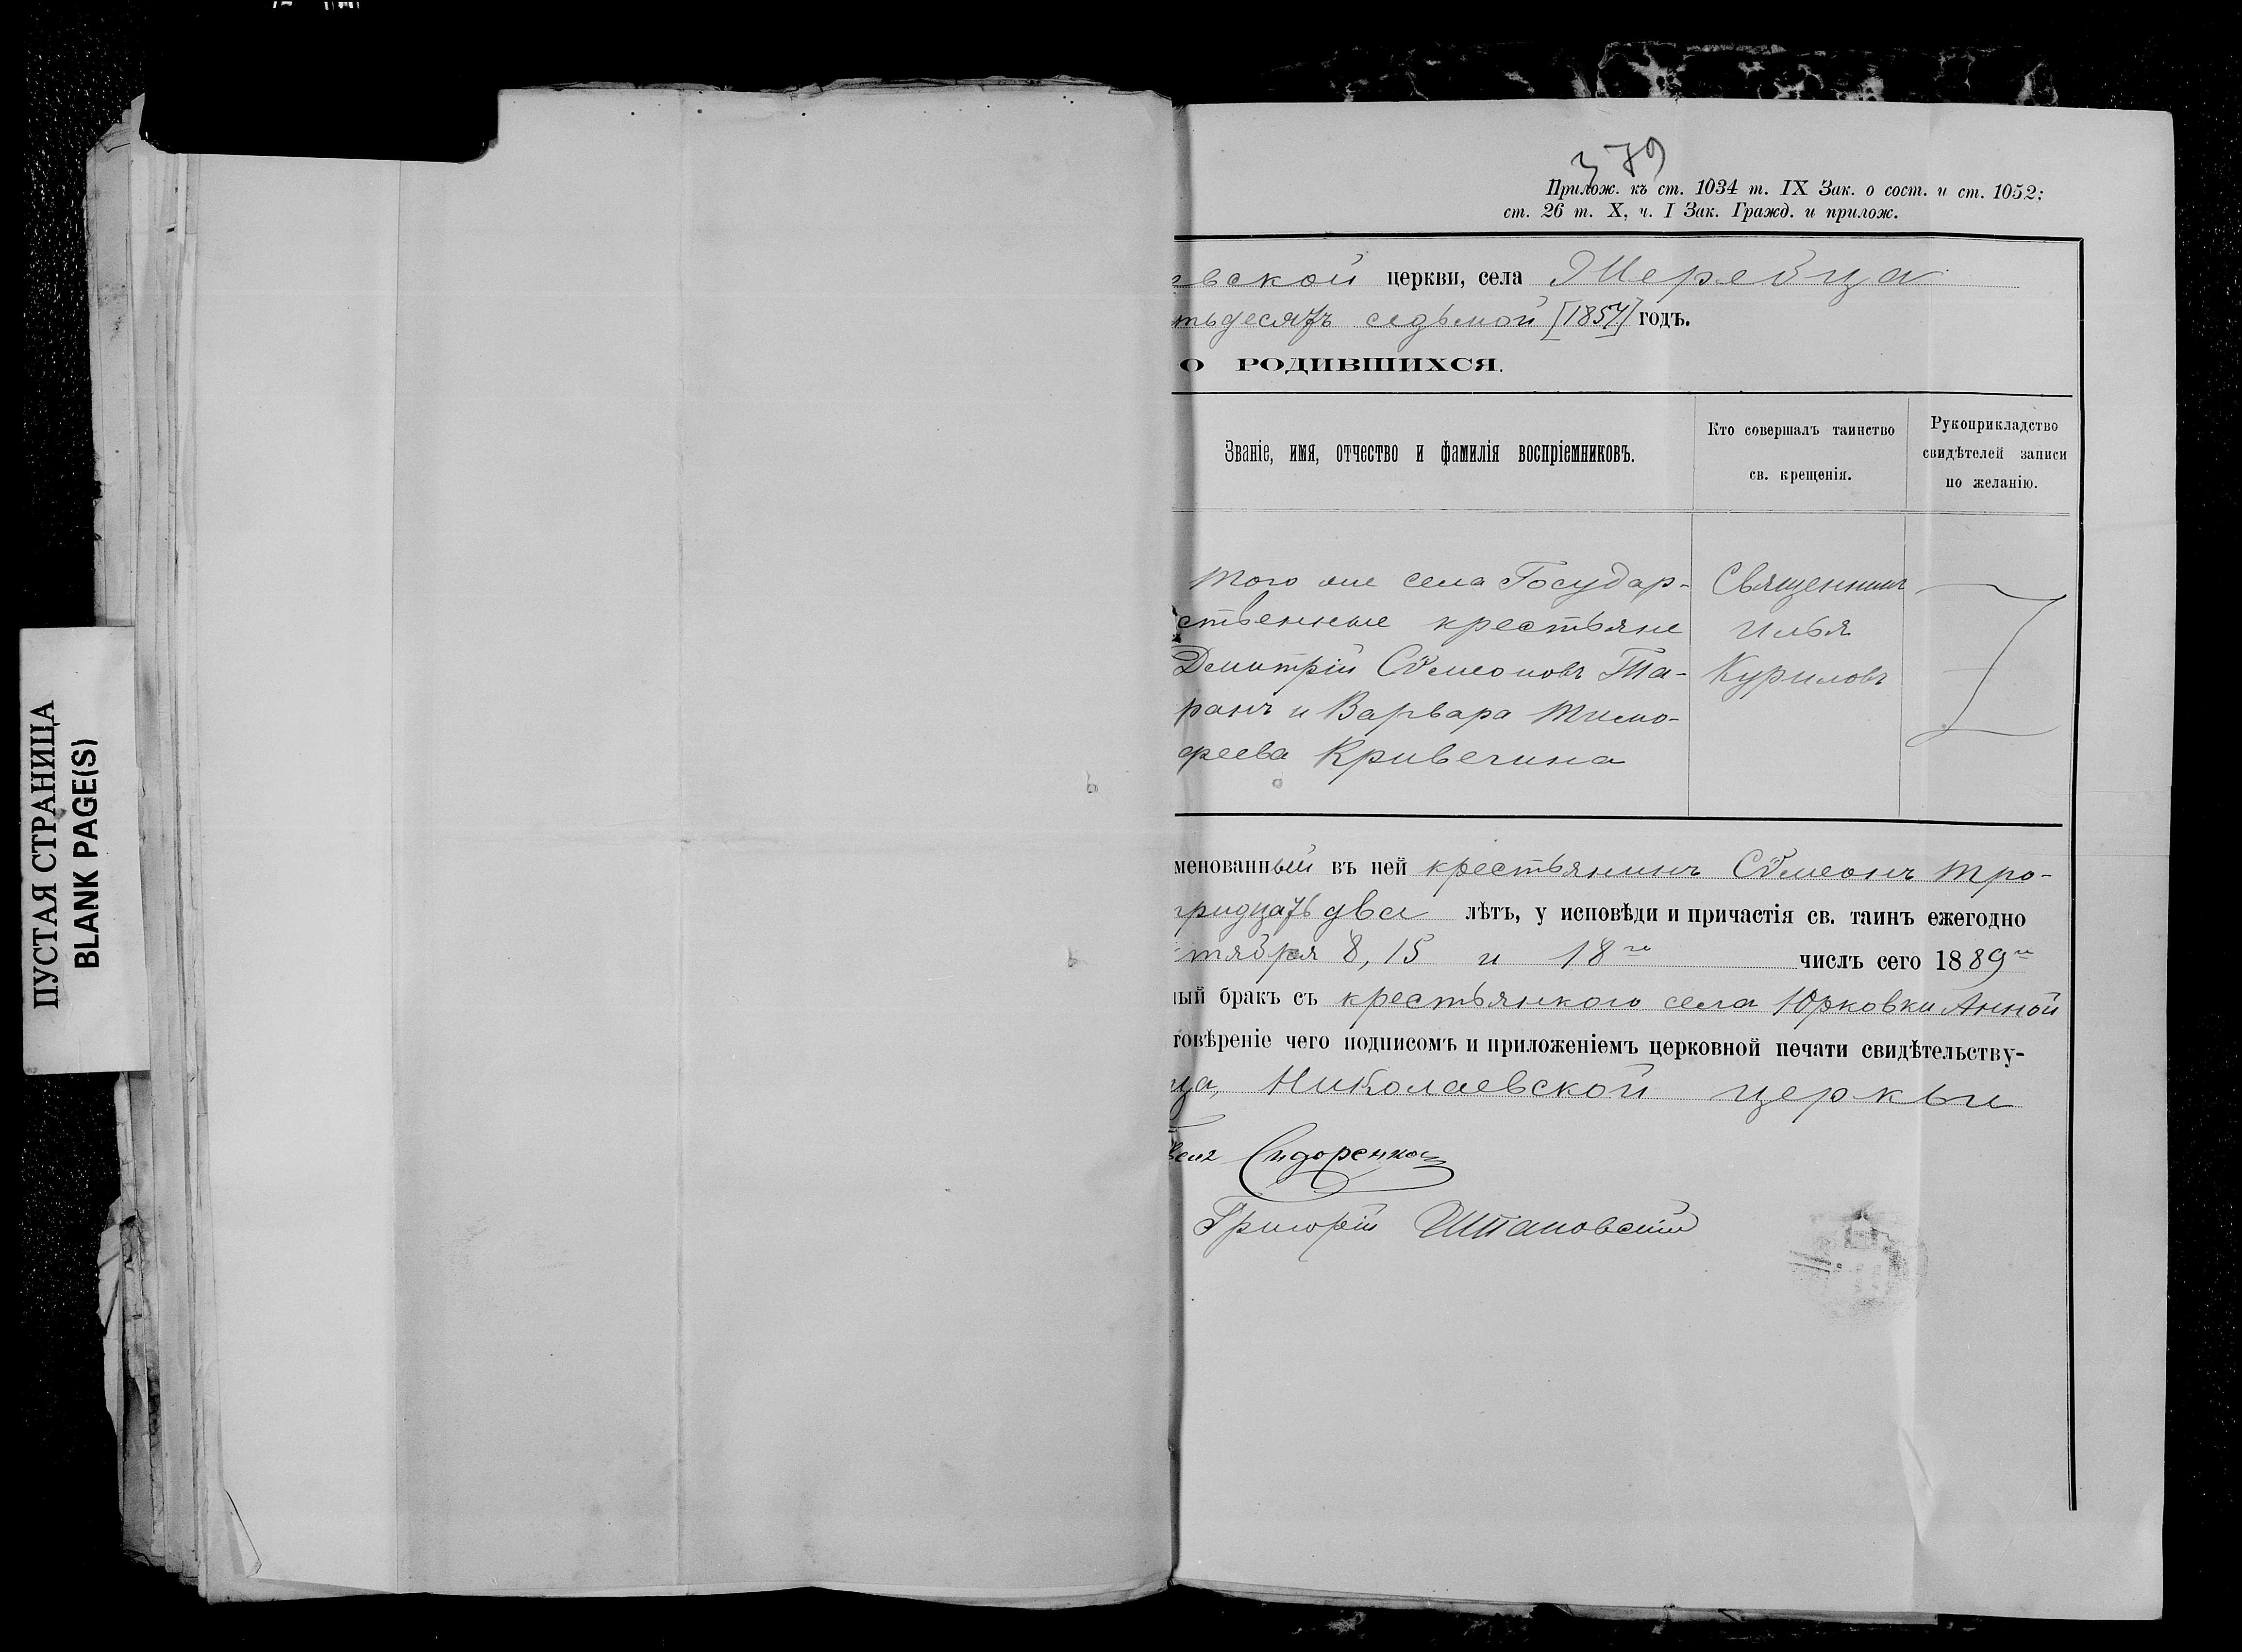 ПУСТАЯ СТРАНИЦА
BLANK PAGE(S)
379
Прилож. къ ст. 1034 т. IX Зак. о сост. и ст. 1052;
ст. 26 т. X, ч. I Зак. Гражд. и прилож.
евской церкви, села Терейца
тьдесятъ седьмой [1857] годъ.
О РОДИВШИХСЯ.
Званіе, имя, отчество и фамилія воспріемниковъ.
Кто совершалъ таинство
св. крещенія.
Рукоприкладство
свидѣтелей записи
по желанію.
того же села Государ-
ственные крестьяне
Димитрій Сѵмеоновъ Та-
ранъ и Варвара Тимо-
феева Кривегина
Священникъ
Илья
Куриловъ
менованный въ ней крестьянинъ Сѵмеонъ Тро-
тридцать два лѣтъ, у исповѣди и причастія св. таинъ ежегодно
тября 8, 15 и 18го числъ сего 1889го
ный бракъ съ крестьянкою села Юрковки Анной
товѣреніе чего подписомъ и приложеніемъ церковной печати свидѣтельству-
ца, Николаевской церкви
Сидоренко
Григорій Штановскій